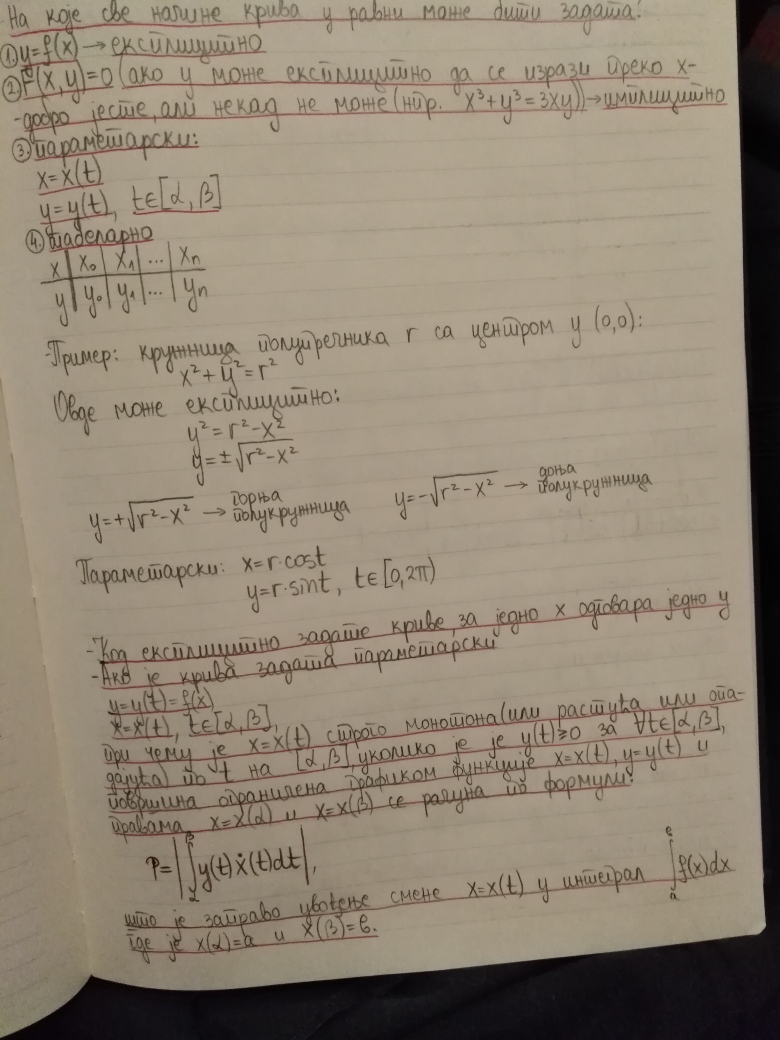 На које све начине крива у равни може бити задата?
① y=f(x) → експлицитно
② F(x,y)=0 (ако y може експлицитно да се изрази преко x-
-добро јесте, али некад не може (нпр. x³+y³=3xy)) → имплицитно
③ параметарски:
x=x(t)
y=y(t), t∈[α,β]
④ табеларно
x | x₀ | x₁ | ... | xₙ
y | y₀ | y₁ | ... | yₙ
-Пример: кружница полупречника r са центром у (0,0):
x²+y²=r²
Овде може експлицитно:
y²=r²-x²
y=±√(r²-x²)
y=+√(r²-x²) → горња полукружница y=-√(r²-x²) → доња полукружница
Параметарски: x=r·cost
y=r·sint, t∈[0,2π)
-Код експлицитно задате криве, за једно x одговара једно y
-Ако је крива задата параметарски
y=y(t)=f(x)
x=x(t), t∈[α,β],
при чему је x=x(t) строго монотона (или растућа или опа-
дајућа) по t на [α,β], уколико је је y(t)≥0 за ∀t∈[α,β],
површина ограничена графиком функције x=x(t), y=y(t) и
правама x=x(α) и x=x(β) се рачуна по формули:
P=|∫_α^β y(t)ẋ(t)dt|,
што је заправо увођење смене x=x(t) у интеграл ∫_a^в f(x)dx
где је x(α)=a и x(β)=в.